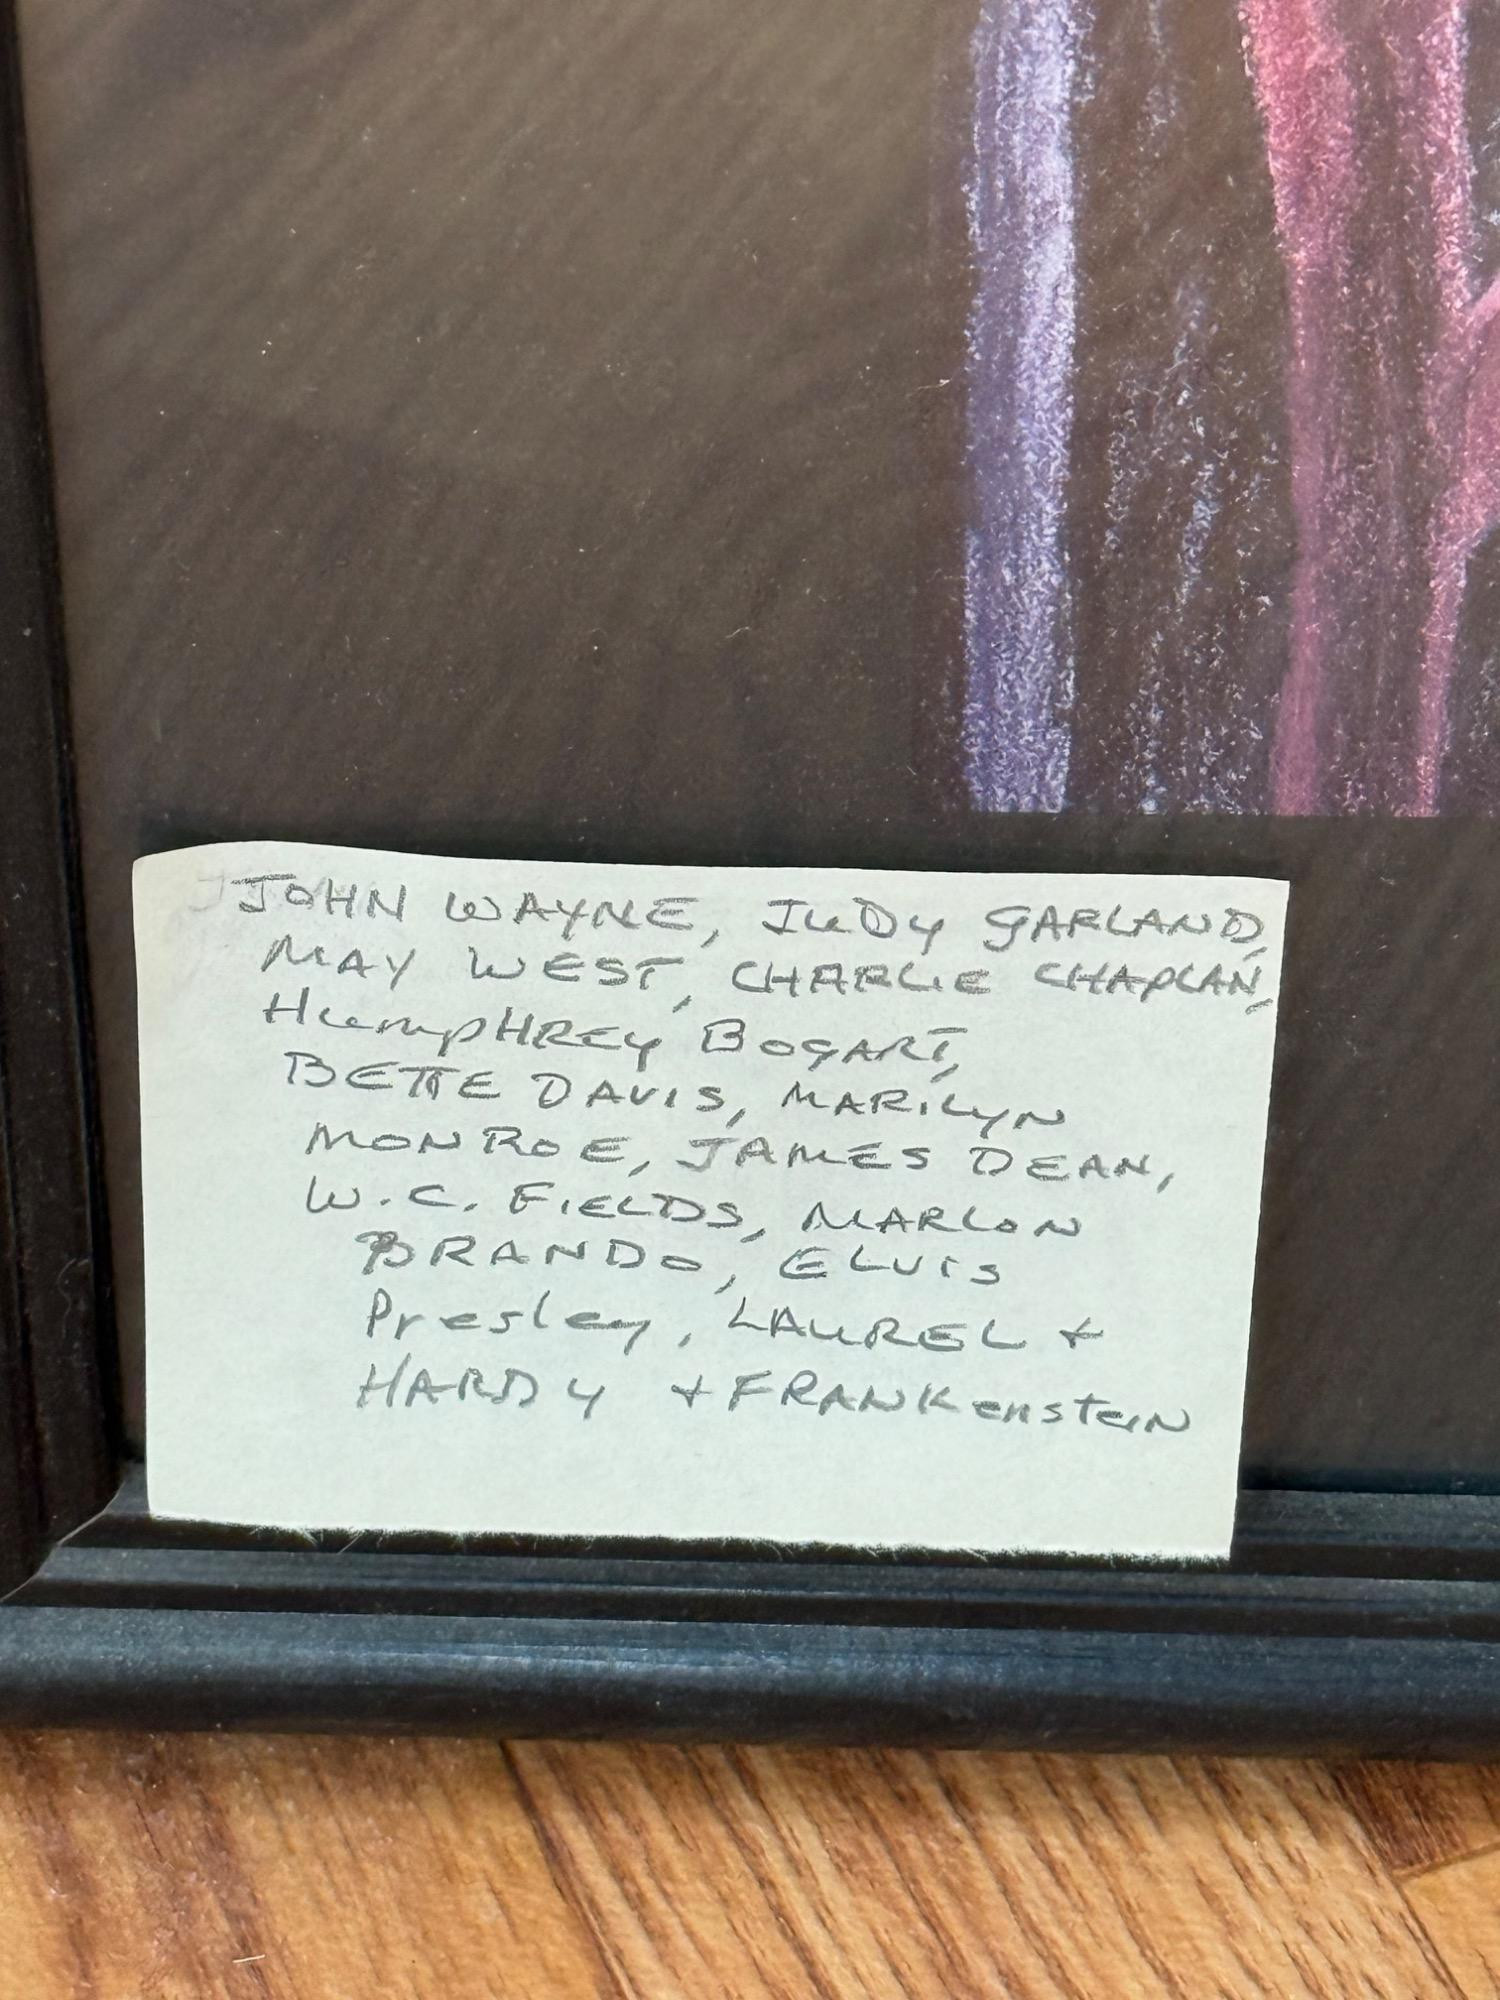 JOHN WAYNE, JUDY GARLAND,
MAY WEST, CHARLIE CHAPLAN,
HumpHREY BOGART,
BETTE DAVIS, MARILYN
MONROE, JAMES DEAN,
W.C. FIELDS, MARLON
BRANDO, ELVIS
Presley, LAUREL +
HARDY + FRANKenstein